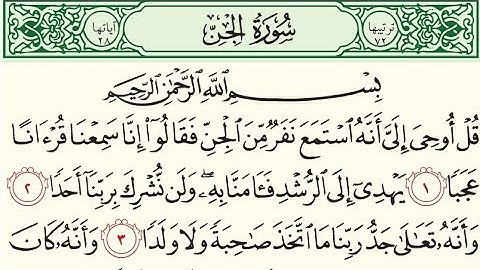 ترتيبها ٧٢ سُورَةُ الجِنِّ آياتها ٢٨
بِسْمِ اللَّهِ الرَّحْمَٰنِ الرَّحِيمِ
قُلْ أُوحِيَ إِلَيَّ أَنَّهُ ٱسْتَمَعَ نَفَرٌ مِّنَ ٱلْجِنِّ فَقَالُوٓا۟ إِنَّا سَمِعْنَا قُرْءَانًا
عَجَبًا ١ يَهْدِىٓ إِلَى ٱلرُّشْدِ فَـَٔامَنَّا بِهِۦ ۖ وَلَن نُّشْرِكَ بِرَبِّنَآ أَحَدًا ٢
وَأَنَّهُۥ تَعَٰلَىٰ جَدُّ رَبِّنَا مَا ٱتَّخَذَ صَٰحِبَةً وَلَا وَلَدًا ٣ وَأَنَّهُۥ كَانَ